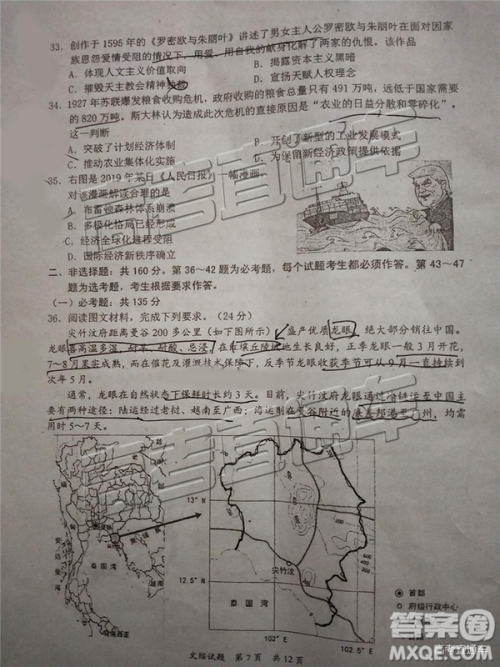 33. 创作于 1595 年的《罗密欧与朱丽叶》讲述了男女主人公罗密欧与朱丽叶在面对因家
族恩怨爱情受阻的情况下，用爱、用自我的献身化解了两家的仇恨。该作品
A. 体现人文主义价值取向 B. 揭露资本主义黑暗
C. 摧毁天主教会精神 D. 宣扬天赋人权理念
34. 1927 年苏联爆发粮食收购危机，政府收购的粮食总量只有 491 万吨，远低于国家需要
的 820 万吨。斯大林认为造成此次危机的直接原因是“农业的日益分散和零碎化”。
这一判断
A. 突破了计划经济体制 B. 开创了新型的工业发展模式
C. 推动农业集体化实施 D. 为保留新经济政策提供依据
35. 右图是 2019 年某日《人民日报》一幅漫画，
对该漫画解读合理的是
A. 布雷顿森林体系崩溃
B. 多极化格局已经形成
C. 经济全球化进程受阻
D. 国际经济新秩序确立
二、非选择题：共 160 分。第 36～42 题为必考题，每个试题考生都必须作答。第 43～47
题为选考题，考生根据要求作答。
（一）必考题：共 135 分
36. 阅读图文材料，完成下列要求。（24 分）
尖竹汶府距离曼谷 200 多公里（如下图所示），盛产优质龙眼，绝大部分销往中国。
龙眼喜高温多湿、耐旱、耐酸、忌浸，在丘陵地生长良好，正季龙眼一般 3 月开花，
7～8 月果实成熟，而在催花及灌溉技术保障下，反季节龙眼收获季节可从 9 月一直持续到
次年 5 月。
通常，龙眼在自然状态下保鲜时长约 3 天。目前，尖竹汶府龙眼通过冷链运至中国主
要有两种途径：陆运经过老挝、越南至广西；海运则在曼谷附近的廉差邦港至广州，均需
用时 5～7 天。
13° N
12.5° N
尖竹汶
泰国湾
泰国湾
102° E
102.5° E
首都
府级行政中心
文综试题 第 7 页 共 12 页
高考直通车
答案圈